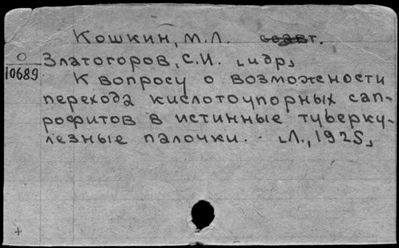 Кошкин, М.Л. соавт.
О
10689
Златогоров, С.И. [и др.]
К вопросу о возможности
перехода кислотоупорных сап-
рофитов в истинные туберку-
лезные палочки. . [Л., 1925]